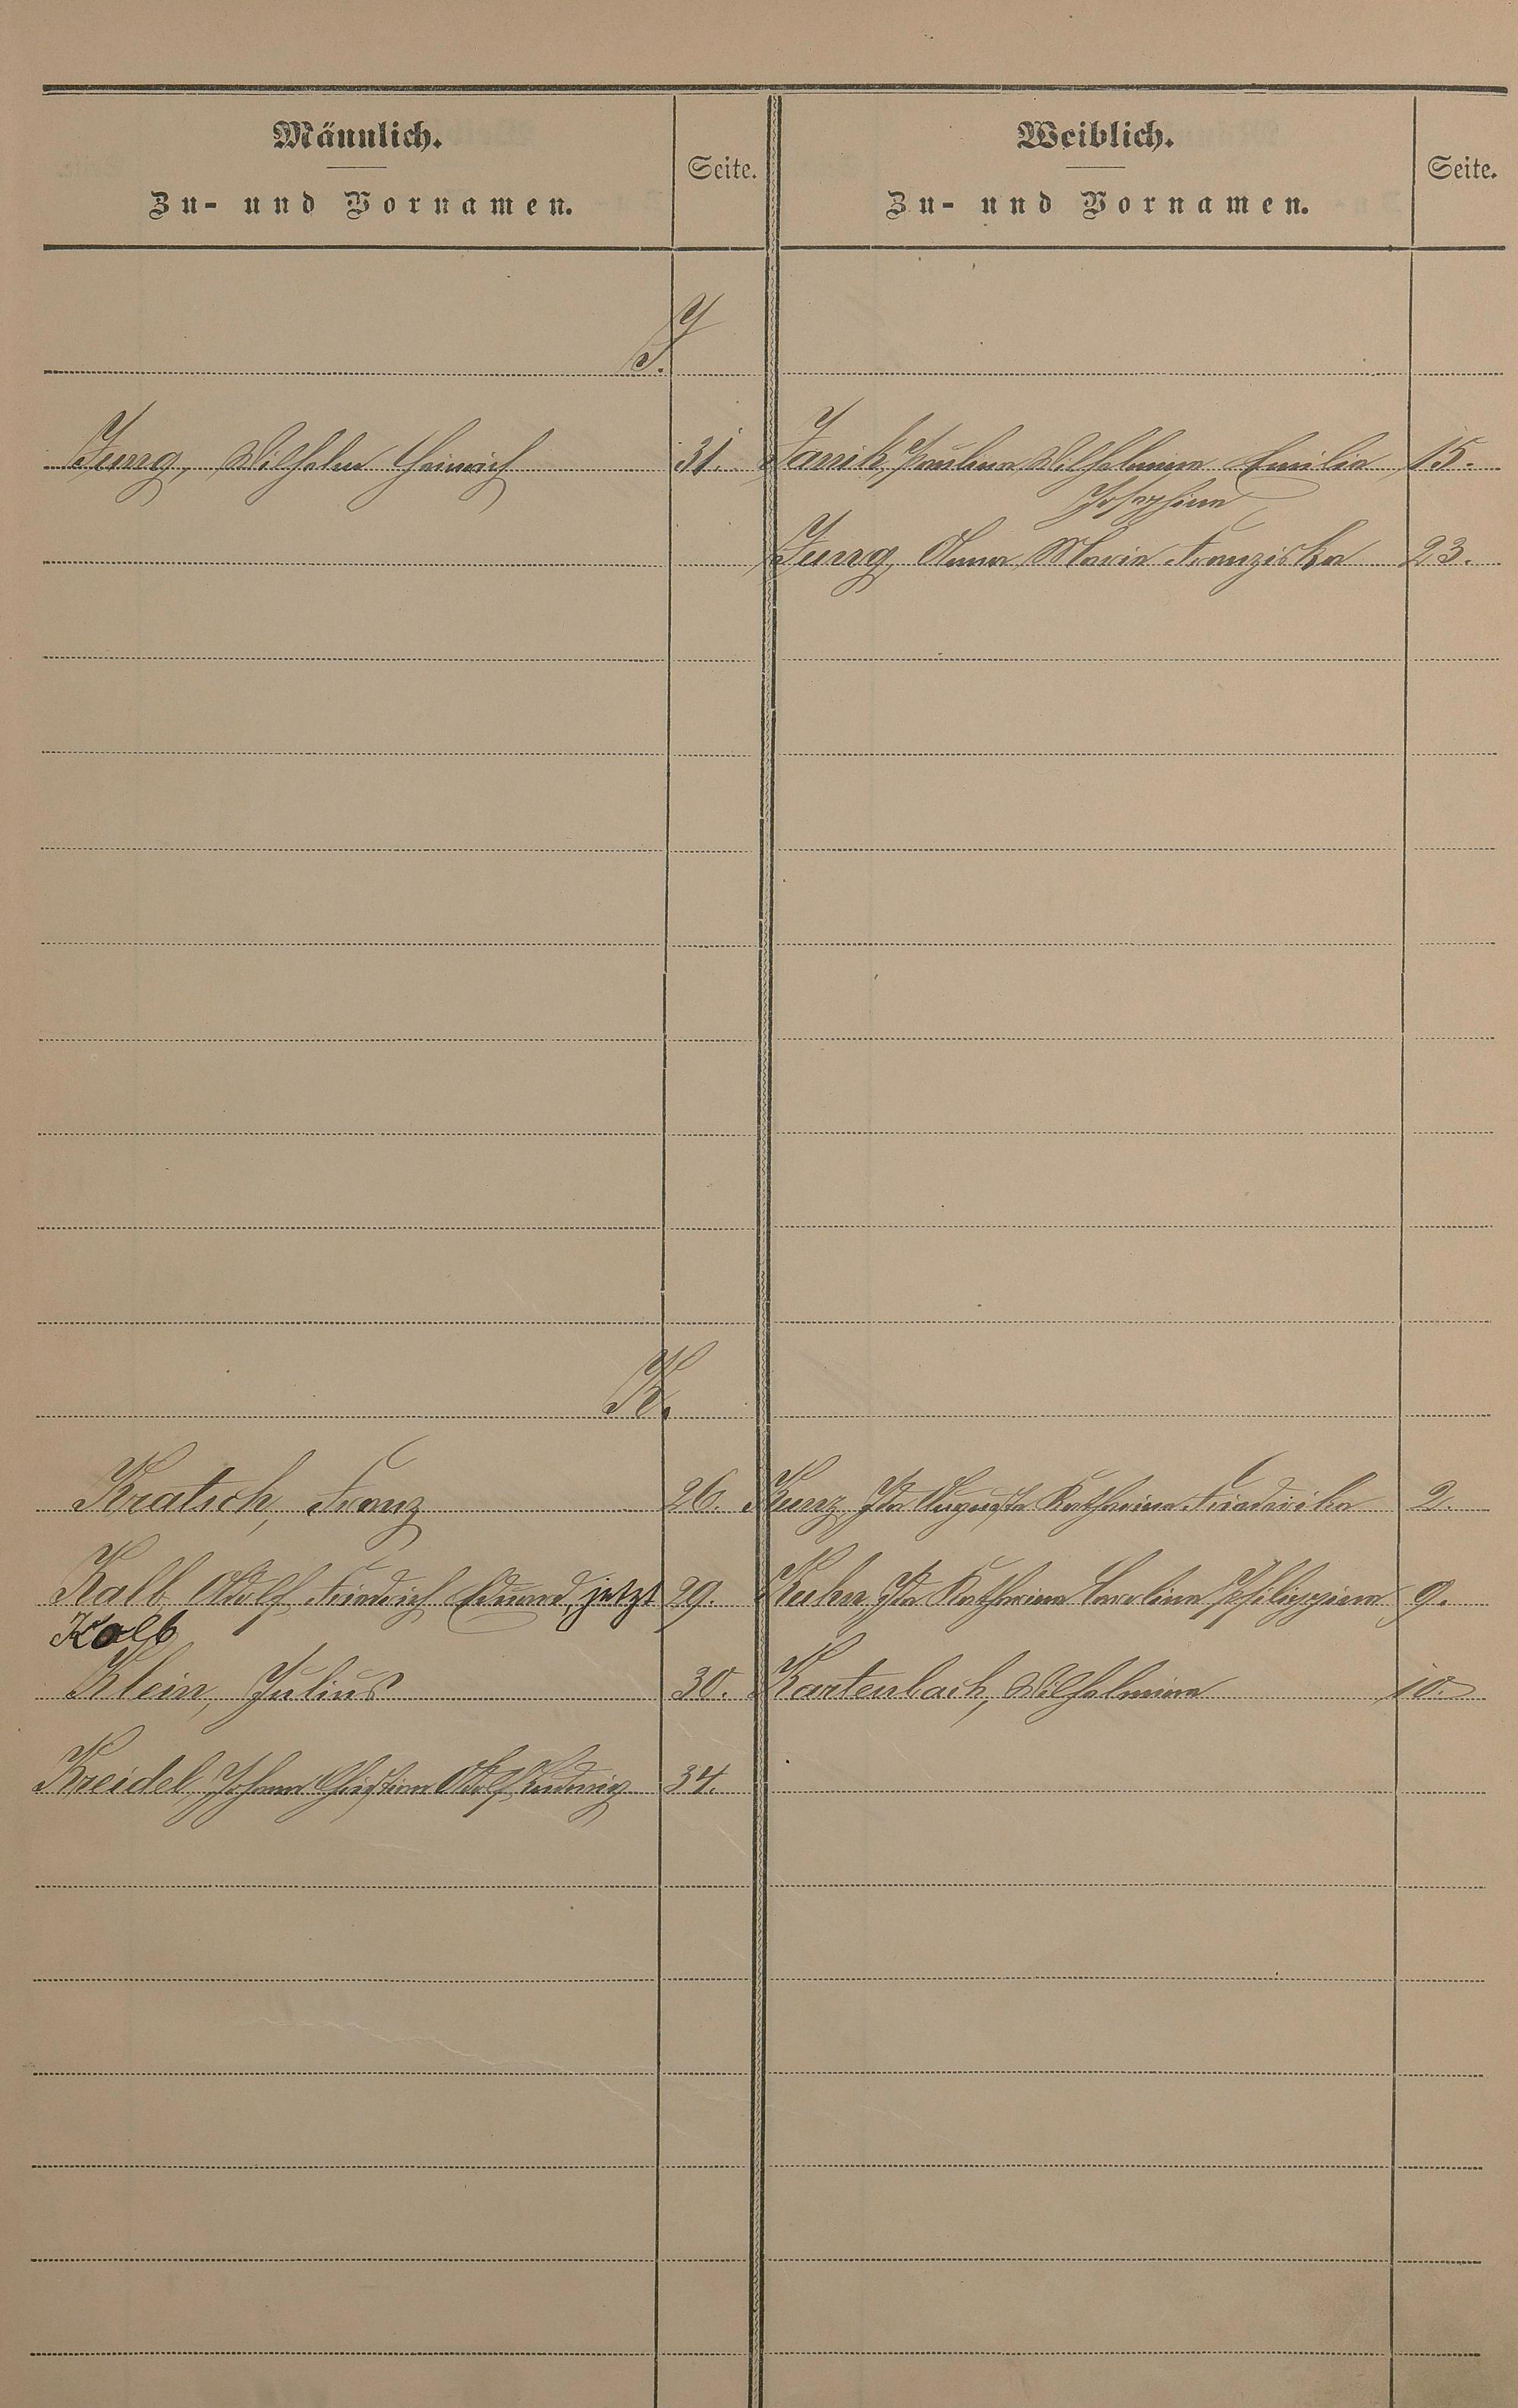 Männlich.
Zu- und Vornamen.
Seite.
Weiblich.
Zu- und Vornamen.
Seite.
J.
Jung, Wilhelm Heinrich 31. Janik, Pauline Wilhelmine Emilie 15.
Josephine
Jung, Anna Maria Franziska 23.
K.
Kratsch, Franz 26. Kunz, Ida Auguste Katharina Friederike 2.
Kalb Adolf Friedrich Eduard, jetzt 29. Kuhn, Ida Katharina Caroline Philippine 9.
Kolb
Klein, Julius 30. Kartenbach, Wilhelmine 10.
Kreidel Johann Christian Adolf Ludwig 34.